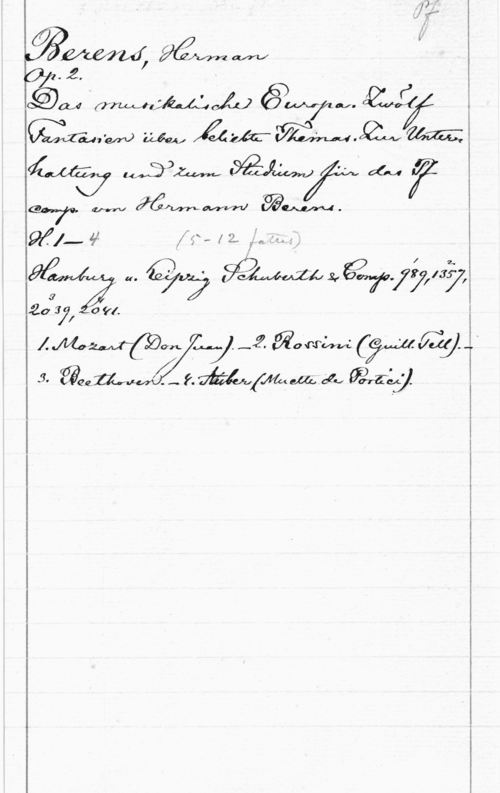 Pf
Berens, Herman
Op. 2.
Das musikalische Europa. Zwölf
Fantasien über beliebte Themas. Zur Unter-
haltung und zum Studium für das Pf
comp. von Hermann Berens.
H. 1-4 (5-12 fattas)
Hamburg u. Leipzig Schuberth & Comp. 989, 1357,
2039, 2041.
1. Mozart (Don Juan). - 2. Rossini (Guill. Tell). -
3. Beethoven. - 4. Auber (Muette de Portici).